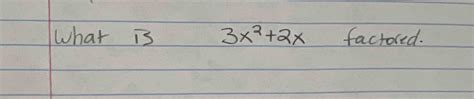 What is 3x²+2x factored.